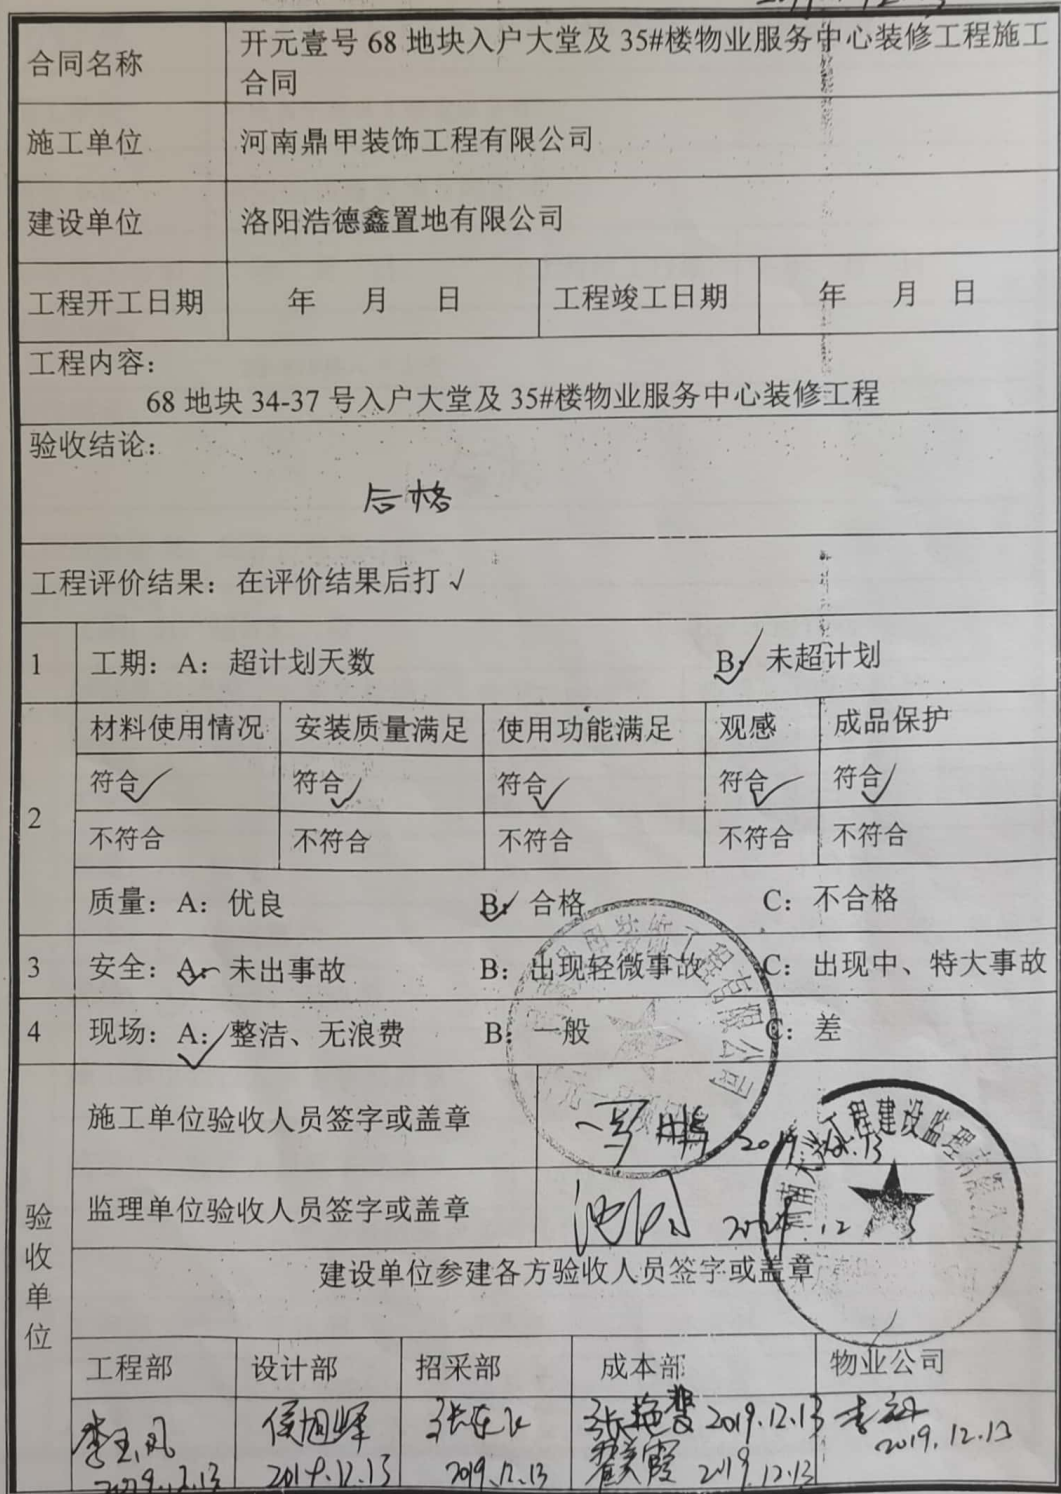 合同名称
开元壹号 68 地块入户大堂及 35#楼物业服务中心装修工程施工
合同
施工单位
河南鼎甲装饰工程有限公司
建设单位
洛阳浩德鑫置地有限公司
工程开工日期 年 月 日 工程竣工日期 年 月 日
工程内容：
68 地块 34-37 号入户大堂及 35#楼物业服务中心装修工程
验收结论：
合格
工程评价结果：在评价结果后打√
1 工期：A：超计划天数 B：未超计划
2
材料使用情况 安装质量满足 使用功能满足 观感 成品保护
符合 符合 符合 符合 符合
不符合 不符合 不符合 不符合 不符合
质量：A：优良 B：合格 C：不合格
3 安全：A：未出事故 B：出现轻微事故 C：出现中、特大事故
4 现场：A：整洁、无浪费 B：一般 C：差
验收单位
施工单位验收人员签字或盖章
监理单位验收人员签字或盖章
工程建设监理有限公司
建设单位参建各方验收人员签字或盖章
工程部 设计部 招采部 成本部 物业公司
李玉凤 侯旭峰
2019.12.13 2019.12.13 2019.12.13 2019.12.13 2019.12.13
2019.12.13